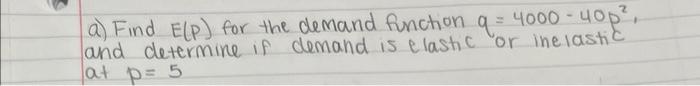 a) Find E(p) for the demand function q = 4000 - 40p²,
and determine if demand is elastic or inelastic
at p = 5